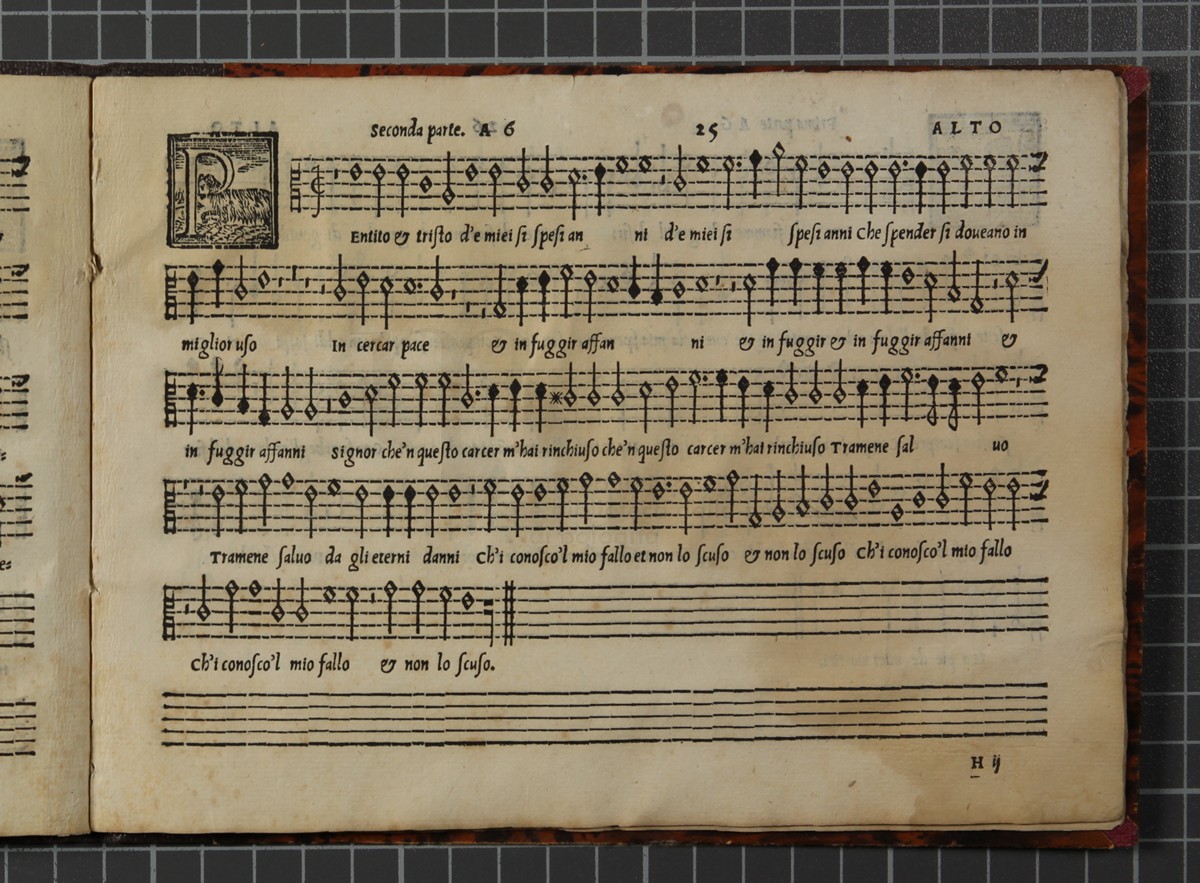 Seconda parte. A 6 25 ALTO
PEntito & tristo d'e miei si spesi an ni d'e miei si spesi anni Che spender si doueano in
miglior uso In cercar pace & in fuggir affan ni & in fuggir & in fuggir affanni &
in fuggir affanni Signor che'n questo carcer m'hai rinchiuso che'n questo carcer m'hai rinchiuso Tramene sal uo
Tramene saluo da gli eterni danni Ch'i conosco'l mio fallo et non lo scuso & non lo scuso Ch'i conosco'l mio fallo
Ch'i conosco'l mio fallo & non lo scuso.
H ij